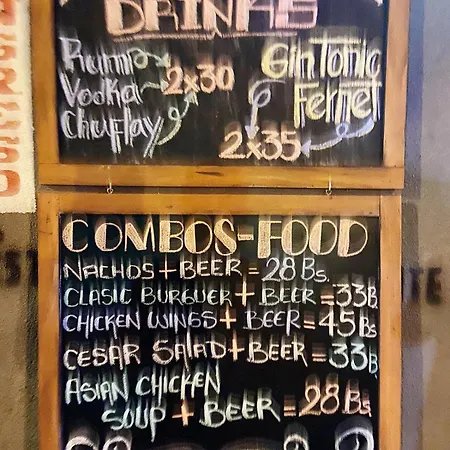 DRINKS
Rum
Vodka 2x30
Chuflay
Gin Tonic
Fernet
2x35
COMBOS-FOOD
NACHOS + BEER = 28 Bs.
CLASIC BURGUER + BEER = 33B.
CHICKEN WINGS + BEER = 45 Bs
CESAR SALAD + BEER = 33B
ASIAN CHICKEN
SOUP + BEER = 28 Bs.